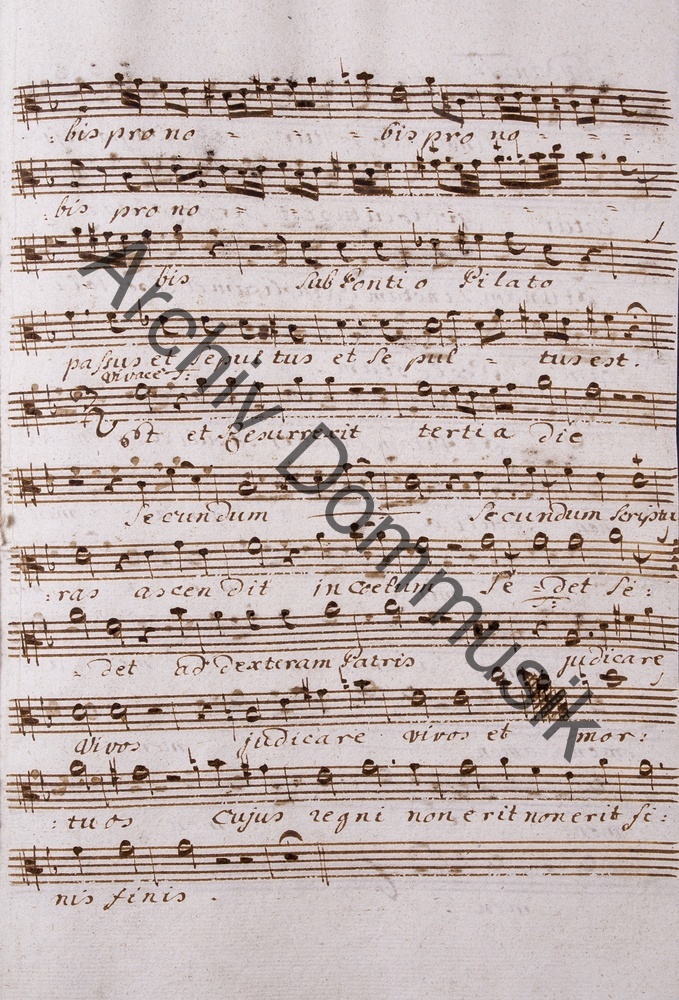 : bis pro no - - - - bis pro no - - - -
bis pro no - - - -
bis sub Pontio Pilato
passus et sepultus et se pul - tus est.
Vivace
Et et Resurrexit tertia die
secundum secundum scriptu
: ras ascendit in Coelum se - det se :
- det ad dexteram Patris judicare
vivos judicare vivos et mor :
: tuos Cujus regni non erit non erit fi :
nis finis .
Archiv Dommusik